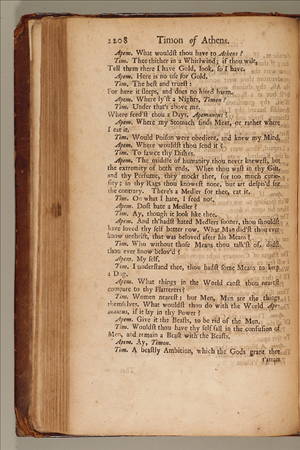 2208 Timon of Athens.
Apem. What wouldst thou have to Athens?
Tim. Thee thither in a Whirlwind; if thou wilt,
Tell them there I have Gold, look, so I have.
Apem. Here is no use for Gold.
Tim. The best and truest:
For here it sleeps, and does no hired harm.
Apem. Where ly'st a Nights, Timon?
Tim. Under that's above me.
Where feed'st thou a Days, Apemantus?
Apem. Where my Stomach finds Meat, or rather where
I eat it.
Tim. Would Poison were obedient, and knew my Mind.
Apem. Where wouldst thou send it?
Tim. To sawce thy Dishes.
Apem. The middle of humanity thou never knewest, but
the extremity of both ends. When thou wast in thy Gilt,
and thy Perfume, they mockt thee, for too much curio-
sity; in thy Rags thou knowest none, but art despis'd for
the contrary. There's a Medler for thee, eat it.
Tim. On what I hate, I feed not.
Apem. Dost hate a Medler?
Tim. Ay, though it look like thee.
Apem. And th'hadst hated Medlers sooner, thou shouldst
have loved thy self better now. What Man didst thou ever
know unthrift, that was beloved after his Means?
Tim. Who without those Means thou talk'st of, didst
thou ever know belov'd?
Apem. My self.
Tim. I understand thee, thou hadst some Means to keep
a Dog.
Apem. What things in the World canst thou nearest
compare to thy Flatterers?
Tim. Women nearest; but Men, Men are the things
themselves. What wouldst thou do with the World Ape-
mantus, if it lay in thy Power?
Apem. Give it the Beasts, to be rid of the Men.
Tim. Wouldst thou have thy self fall in the confusion of
Men, and remain a Beast with the Beasts.
Apem. Ay, Timon.
Tim. A beastly Ambition, which the Gods grant thee